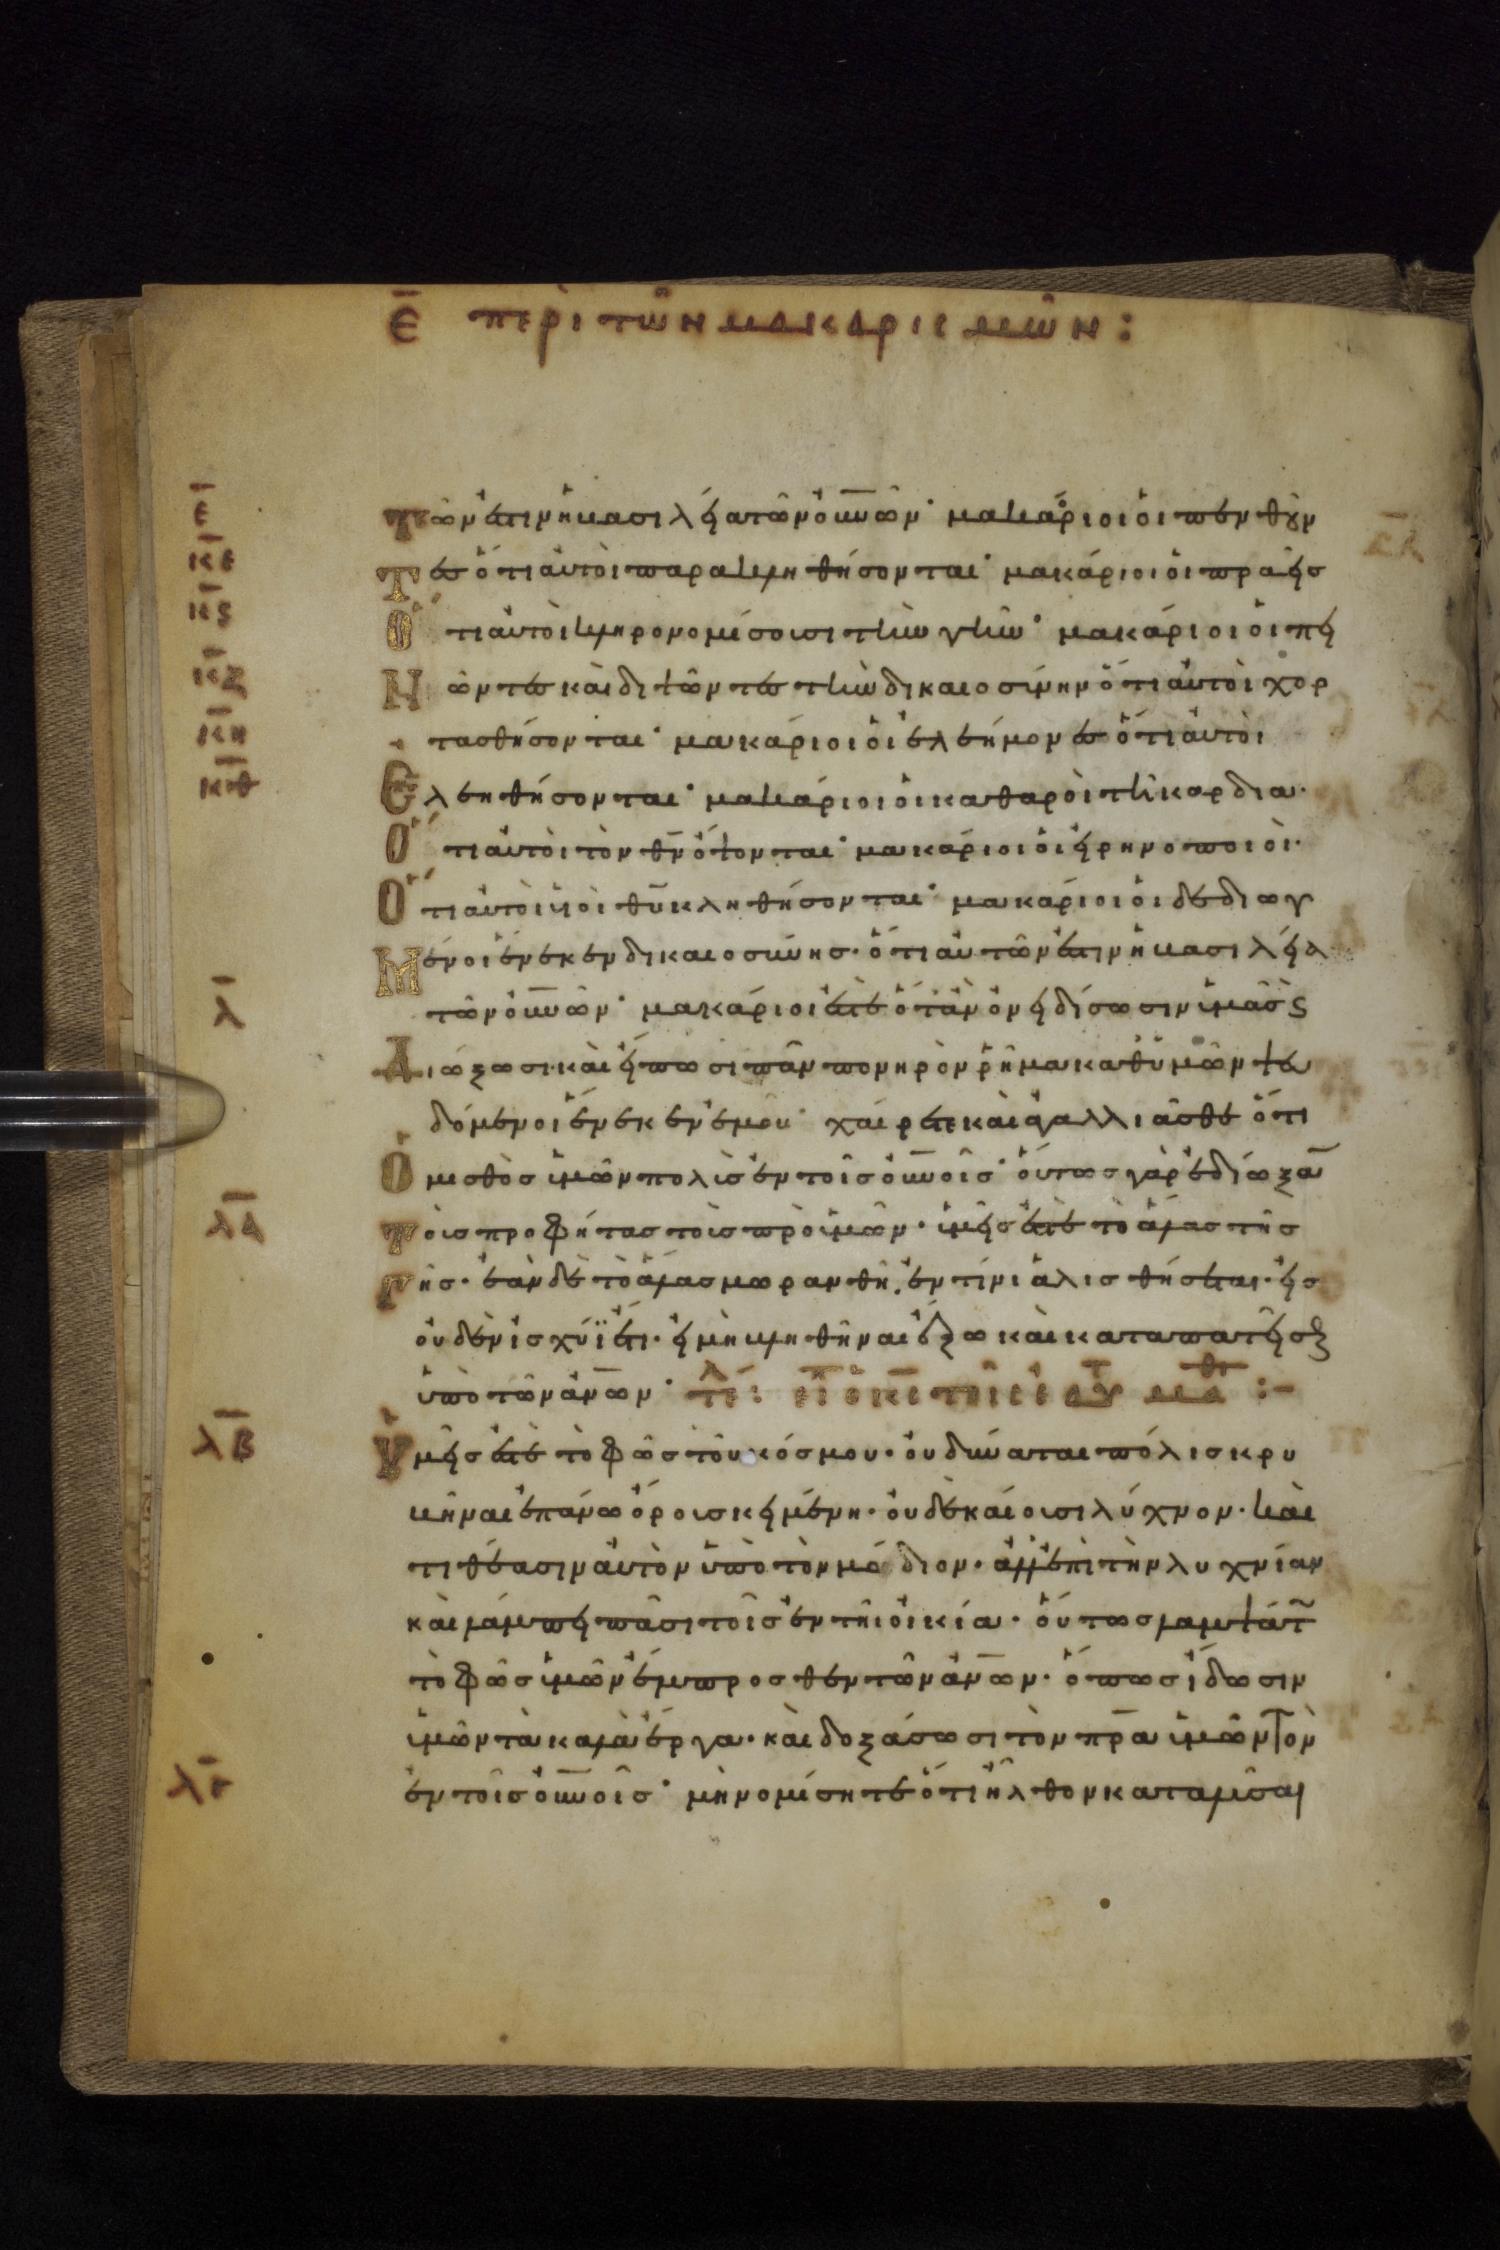 ε̄ περὶ τῶν μακαρισμῶν:
ε̄ Τῶν ἐστιν ἡ βασιλεία τῶν οὐν̅ῶν· μακάριοι οἱ πενθοῦν
κε̄ Τες ὅτι αὐτοὶ παρακληθήσονται· μακάριοι οἱ πραεῖς
κς̄ Ὅτι αὐτοὶ κληρονομίσουσι τὴν γῆν· μακάριοι οἱ πει
κζ̄ Νῶντες καὶ διψῶντες τὴν δικαιοσίνην ὅτι αὐτοὶ χορ
κη̄ τασθήσονται· μακάριοι οἱ ἐλεήμονες ὅτι αὐτοὶ
κθ̄ Ἐλεηθήσονται· μακάριοι οἱ καθαροὶ τῆ καρδία·
Ὅτι αὐτοὶ τὸν θν̅ ὄψονται· μακάριοι οἱ εἰρηνοποιοὶ·
Ὅτι αὐτοὶ υἱοὶ θυ̅ κληθήσονται· μακάριοι οἱ δεδιωγ
Μένοι ἕνεκεν δικαιοσύνης· ὅτι αὐτῶν ἐστιν ἡ βασιλεία
λ̄ τῶν οὐν̅ῶν· μακάριοί ἐστε ὅταν ὀνειδίσωσιν ὑμᾶς ϛ
Διώξωσι καὶ εἴπωσι πᾶν πονηρὸν ῥῆμα καθ' ὑμῶν ψευ
δόμενοι ἕνεκεν ἐμοῦ· χαίρετε καὶ ἀγαλλιᾶσθε ὅτι
Ὁ μισθὸς ὑμῶν πολὶς ἐν τοῖς οὐν̅οῖς· οὕτως γὰρ ἐδίωξαν
λᾱ Τοὺς προφήτας τοὺς πρὸ ὑμῶν· ὑμεῖς ἐστὲ τὸ ἅλας τῆς
Γῆς· ἐὰν δὲ τὸ ἅλας μωρανθῆ, ἐν τίνι ἁλισθήσεται· εἰς
οὐδὲν ἰσχύϊ ἔτι· εἰ μὴ βληθῆναι ἔξω καὶ καταπατεῖσθ
ὑπὸ τῶν ἀν̅ων·
λβ̄ Ὑμεῖς ἐστὲ τὸ φῶς τοῦ κόσμου· οὐ δύναται πόλις κρυ
βῆναι ἐπάνω ὄρους κειμένη· οὐδὲ καίουσι λύχνον· καὶ
τιθέασιν αὐτὸν ὑπὸ τὸν μόδιον· ἀλλ' ἐπὶ τὴν λυχνίαν
καὶ λάμπει πᾶσι τοῖς ἐν τῆ οἰκία· οὕτως λαμψάτ
τὸ φῶς ὑμῶν ἔμπροσθεν τῶν ἀν̅ων· ὅπως ἴδωσιν
ὑμῶν τὰ καλὰ ἔργα· καὶ δοξάσωσι τὸν πρ̅α ὑμῶν τὸν
λγ̄ ἐν τοῖς οὐν̅οῖς· μὴ νομίσητε ὅτι ἦλθον καταλῦσαι